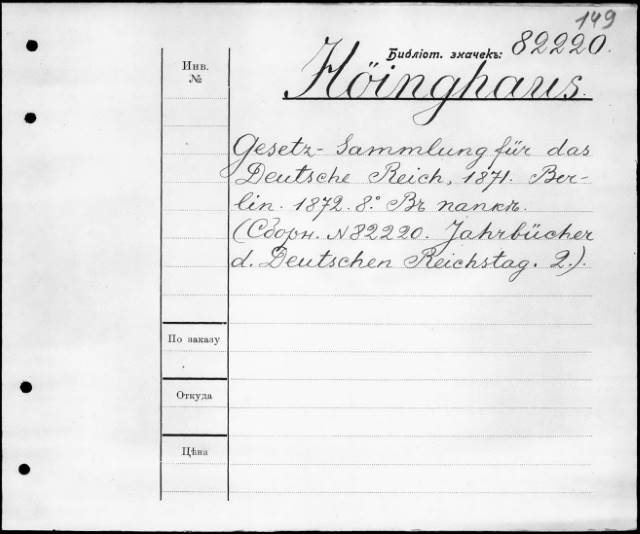 149
Библіот. значекъ: 82220.
Höinghaus.
Инв.
№
Gesetz-Sammlung für das
Deutsche Reich, 1871. Ber-
lin. 1872. 8.° Въ папкѣ.
(Сборн. №82220. Jahrbücher
d. Deutschen Reichstag. 2.).
По заказу
Откуда
Цѣна